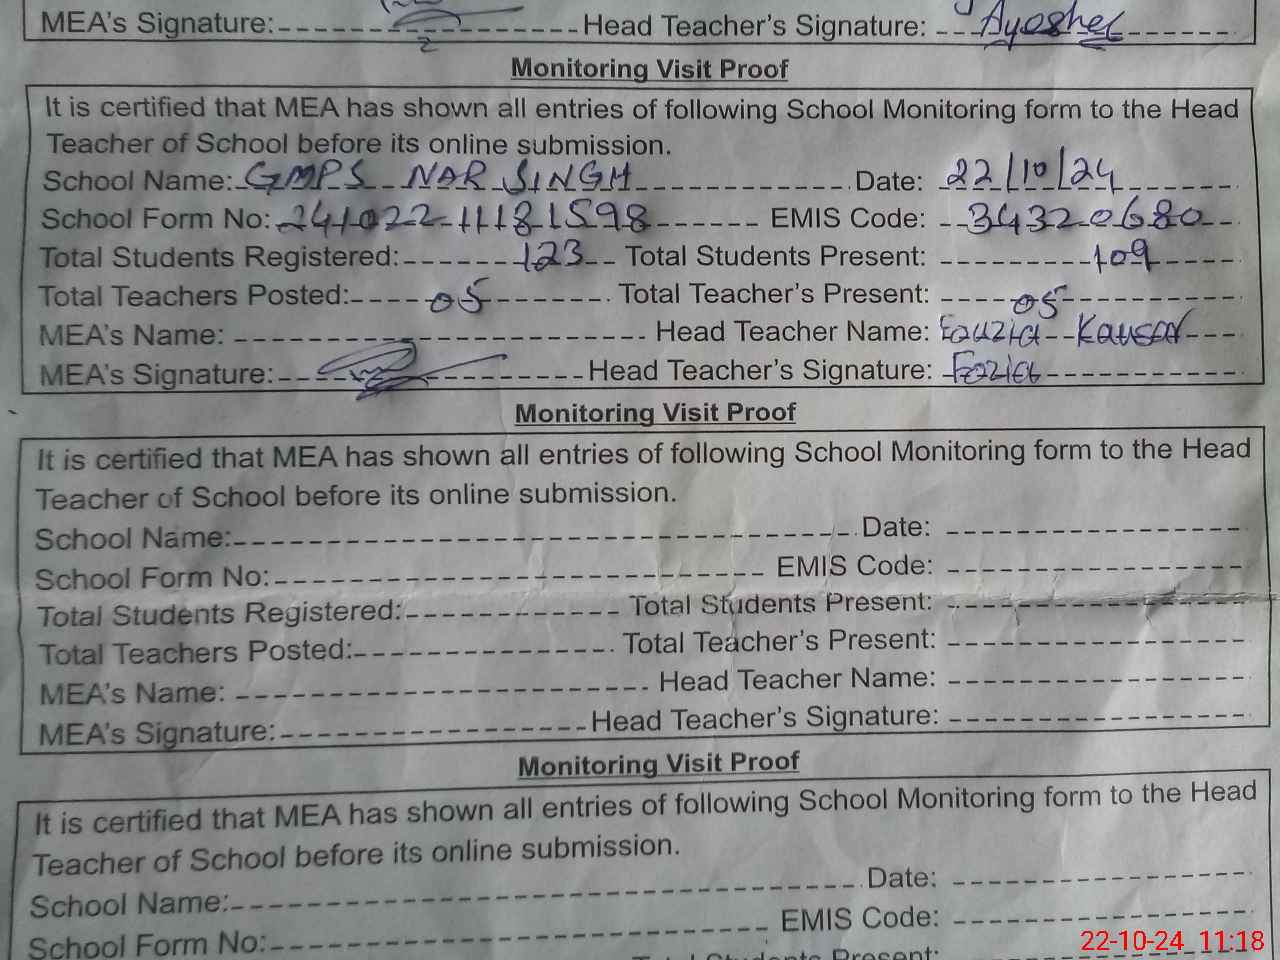 MEA's Signature: Head Teacher's Signature: Ayesha
Monitoring Visit Proof
It is certified that MEA has shown all entries of following School Monitoring form to the Head
Teacher of School before its online submission.
School Name: GMPS NAR SINGH Date: 22/10/24
School Form No: 241022-11181598 EMIS Code: 34320680
Total Students Registered: 123 Total Students Present: 109
Total Teachers Posted: 05 Total Teacher's Present: 05
MEA's Name: Head Teacher Name: Fouzia Kausar
MEA's Signature: Head Teacher's Signature: Fozia
Monitoring Visit Proof
It is certified that MEA has shown all entries of following School Monitoring form to the Head
Teacher of School before its online submission.
School Name: Date:
School Form No: EMIS Code:
Total Students Registered: Total Students Present:
Total Teachers Posted: Total Teacher's Present:
MEA's Name: Head Teacher Name:
MEA's Signature: Head Teacher's Signature:
Monitoring Visit Proof
It is certified that MEA has shown all entries of following School Monitoring form to the Head
Teacher of School before its online submission.
School Name: Date:
School Form No: EMIS Code:
Total Students Present:
22-10-24 11:18